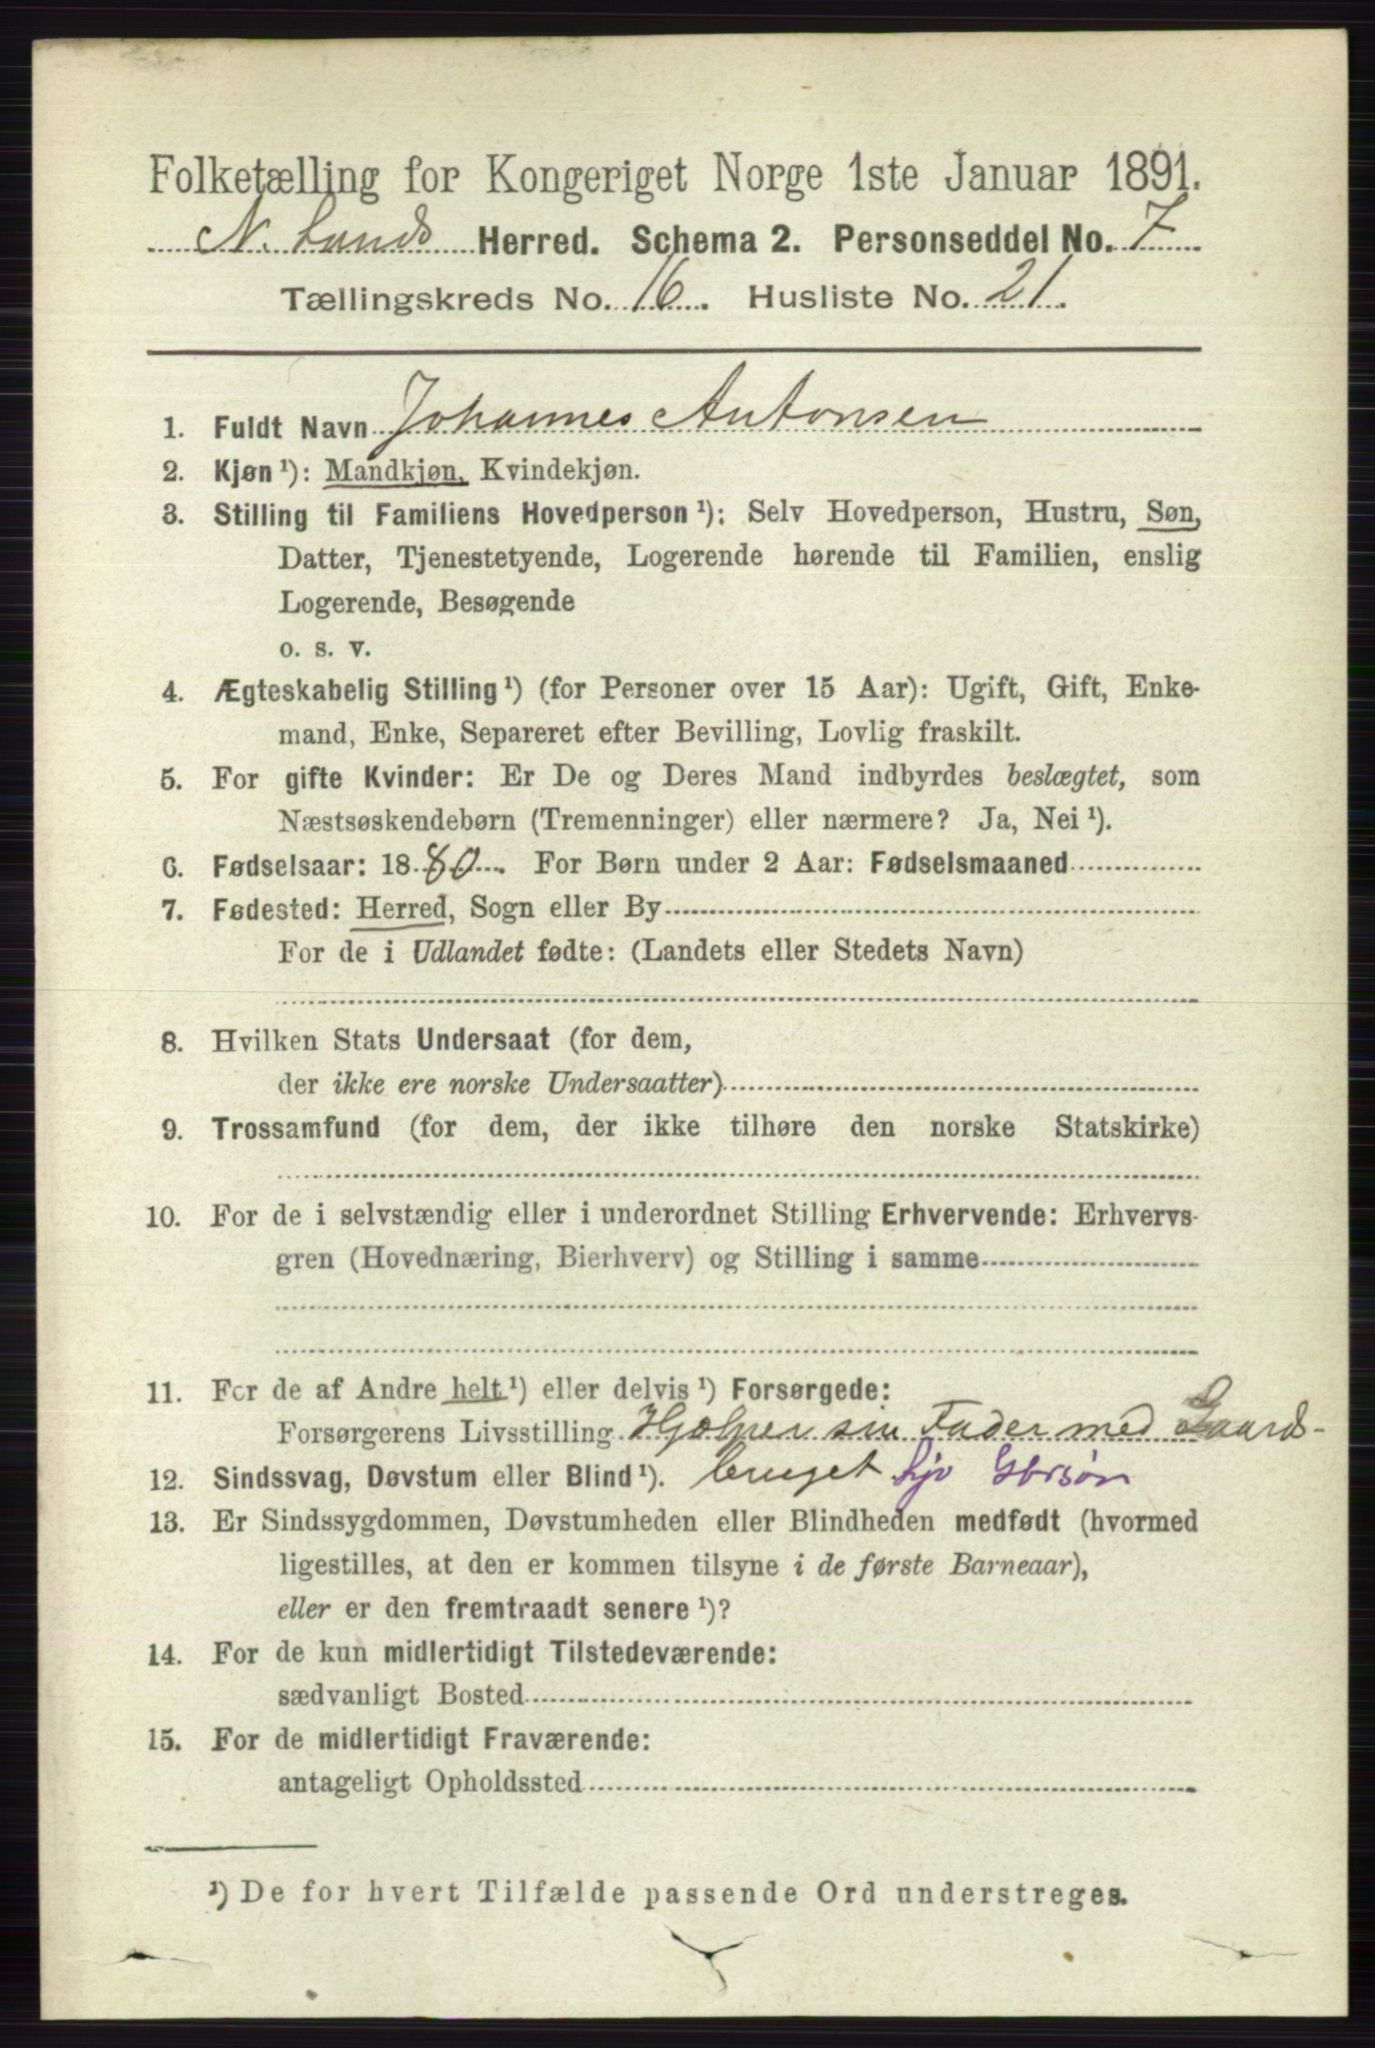 Folketælling for Kongeriget Norge 1ste Januar 1891.
N. Lands Herred. Schema 2. Personseddel No. 7
Tællingskreds No. 16. Husliste No. 21.
1. Fuldt Navn Johannes Antonsen
2. Kjøn¹): Mandkjøn, Kvindekjøn.
3. Stilling til Familiens Hovedperson¹): Selv Hovedperson, Hustru, Søn,
Datter, Tjenestetyende, Logerende hørende til Familien, enslig
Logerende, Besøgende
o. s. v.
4. Ægteskabelig Stilling¹) (for Personer over 15 Aar): Ugift, Gift, Enke-
mand, Enke, Separeret efter Bevilling, Lovlig fraskilt.
5. For gifte Kvinder: Er De og Deres Mand indbyrdes beslægtet, som
Næstsøskendebørn (Tremenninger) eller nærmere? Ja, Nei¹).
6. Fødselsaar: 1880. For Børn under 2 Aar: Fødselsmaaned
7. Fødested: Herred, Sogn eller By
For de i Udlandet fødte: (Landets eller Stedets Navn)
8. Hvilken Stats Undersaat (for dem,
der ikke ere norske Undersaatter)
9. Trossamfund (for dem, der ikke tilhøre den norske Statskirke)
10. For de i selvstændig eller i underordnet Stilling Erhvervende: Erhvervs-
gren (Hovednæring, Bierhverv) og Stilling i samme
11. For de af Andre helt¹) eller delvis¹) Forsørgede:
Forsørgerens Livsstilling Hjælper sin Fader med Gaards-
12. Sindssvag, Døvstum eller Blind¹). bruget
13. Er Sindssygdommen, Døvstumheden eller Blindheden medfødt (hvormed
ligestilles, at den er kommen tilsyne i de første Barneaar),
eller er den fremtraadt senere¹)?
14. For de kun midlertidigt Tilstedeværende:
sædvanligt Bosted
15. For de midlertidigt Fraværende:
antageligt Opholdssted
¹) De for hvert Tilfælde passende Ord understreges.